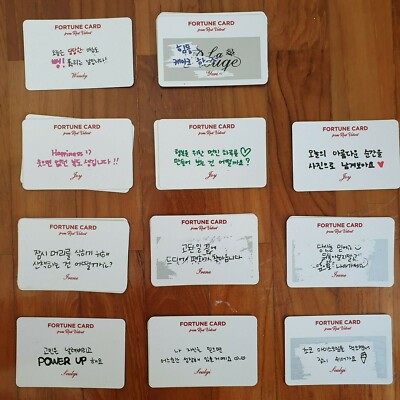 FORTUNE CARD
from Red Velvet
오늘은 막막한 마음도
뻥! 뚫리는 날입니다!
Wendy
FORTUNE CARD
from Red Velvet
힘듦
La
Rouge
Yeri
FORTUNE CARD
from Red Velvet
Happiness :)
웃으면 없던 복도 생깁니다!!
Joy
FORTUNE CARD
from Red Velvet
행복을 위한 멋진 하루를
만들어 보는 건 어떨까요?
Joy
FORTUNE CARD
from Red Velvet
오늘의 아름다운 순간을
사진으로 남겨보아요
Joy
FORTUNE CARD
from Red Velvet
잠시 머리를 식히기 위해
산책하는 건 어떠할까요?
Irene
FORTUNE CARD
from Red Velvet
고된 일 끝에
드디어 편안해
Irene
FORTUNE CARD
from Red Velvet
당신을 믿어요
Irene
FORTUNE CARD
from Red Velvet
고민은 날려버리고
POWER UP 하죠
Seulgi
FORTUNE CARD
from Red Velvet
나 자신을 믿으면
Seulgi
FORTUNE CARD
from Red Velvet
초코 아이스크림을 먹으면서
잠시 쉬어가요
Seulgi